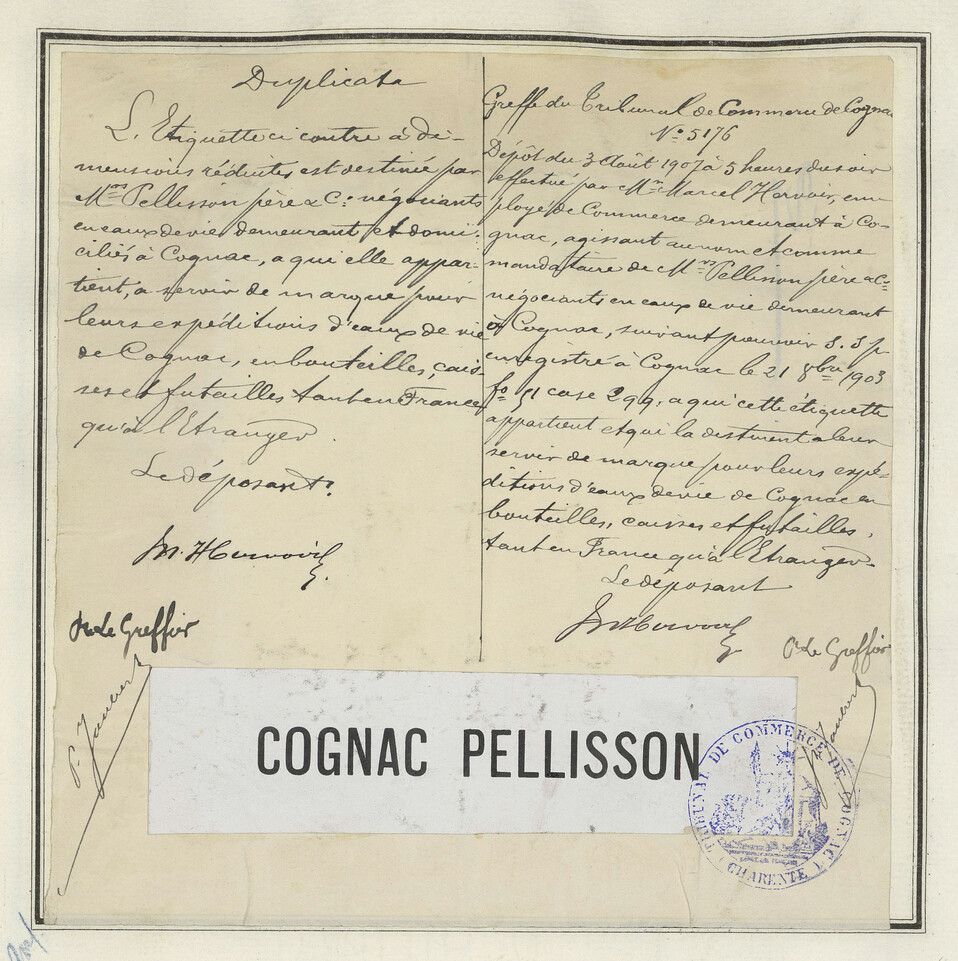 Duplicata
L'Etiquette ci contre à di-
mensions réduites est destinée par
Mrs Pellisson père & Cie négociants
en eaux de vie demeurant et domi-
ciliés à Cognac, a qui elle appar-
tient, a servir de marque pour
leurs expéditions d'eaux de vie
de Cognac, en bouteilles, cais-
ses et futailles tant en France
qu'à l'Etranger.
Le déposant.
M. Hervoix
Pr Le Greffier
P. Jaubert
Greffe du Tribunal de Commerce de Cognac
No 5176
Dépôt du 3 Août 1907 à 5 heures du soir
effectué par Mr Marcel Hervoix, em
ployé de Commerce demeurant à Co-
gnac, agissant au nom et comme
mandataire de Mrs Pellisson père & Cie
négociants en eaux de vie demeurant
à Cognac, suivant pouvoir S. S. p
enregistré à Cognac le 21 8bre 1903
fo 51 case 299, a qui cette étiquette
appartient et qui la destinent a leur
servir de marque pour leurs expé-
ditions d'eaux de vie de Cognac en
bouteilles, caisses et futailles,
tant en France qu'à l'Etranger.
Le déposant
M Hervoix
Pr Le Greffier
Jaubert
COGNAC PELLISSON
TRIBUNAL DE COMMERCE DE COGNAC
CHARENTE